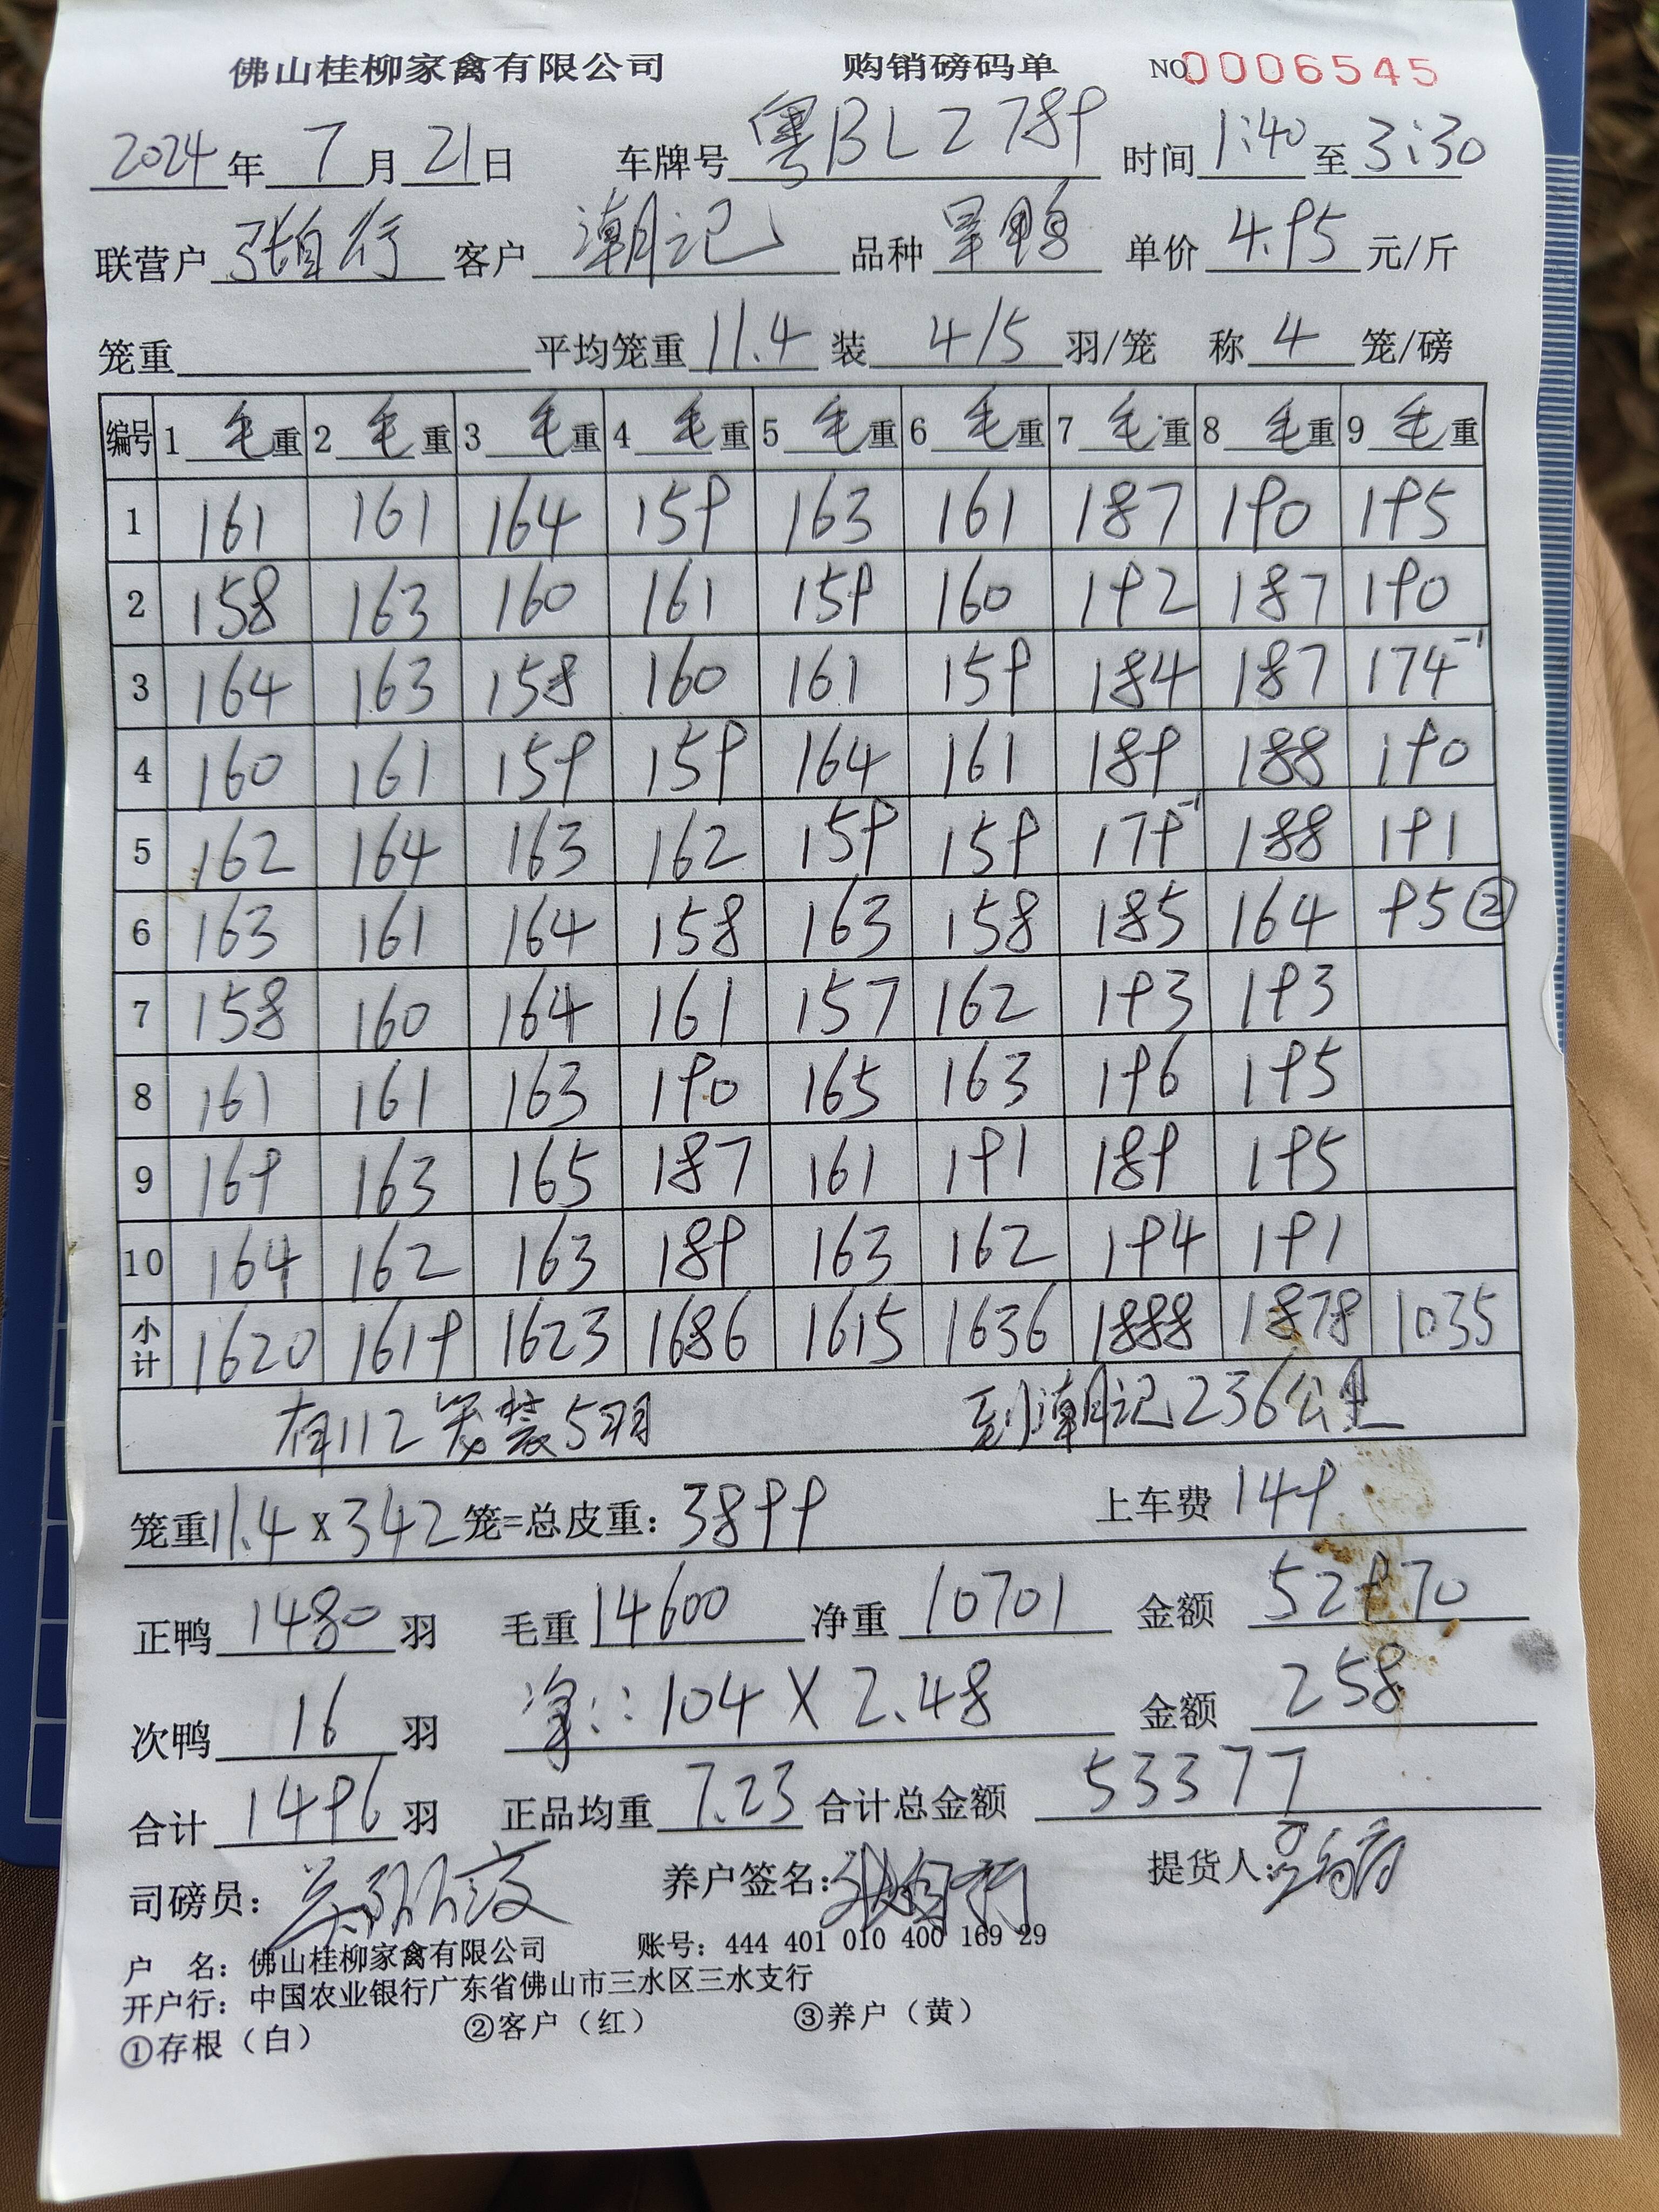 佛山桂柳家禽有限公司 购销磅码单 NO 0006545
2024年7月21日 车牌号 粤BLZ789 时间 1:40 至 3:30
联营户 张自行 客户 潮记 品种 旱鸭 单价 4.95 元/斤
笼重 平均笼重 11.4 装 4/5 羽/笼 称 4 笼/磅
编号 1 毛重 2 毛重 3 毛重 4 毛重 5 毛重 6 毛重 7 毛重 8 毛重 9 毛重
1 161 161 164 159 163 161 187 190 195
2 158 163 160 161 159 160 192 187 190
3 164 163 158 160 161 159 184 187 174 -1
4 160 161 159 159 164 161 189 188 190
5 162 164 163 162 159 159 179 -1 188 191
6 163 161 164 158 163 158 185 164 95 ②
7 158 160 164 161 157 162 193 193
8 161 161 163 190 165 163 196 195
9 169 163 165 187 161 191 189 195
10 164 162 163 189 163 162 194 191
小计 1620 1619 1623 1686 1615 1636 1888 1878 1035
有112笼装5羽 到潮记236公里
笼重 11.4 x 342 笼=总皮重: 3899 上车费 149
正鸭 1480 羽 毛重 14600 净重 10701 金额 52970
次鸭 16 羽 净: 104 X 2.48 金额 258
合计 1496 羽 正品均重 7.23 合计总金额 53377
司磅员: 养户签名: 张自行 提货人:
户 名: 佛山桂柳家禽有限公司 账号: 444 401 010 400 169 29
开户行: 中国农业银行广东省佛山市三水区三水支行
①存根（白） ②客户（红） ③养户（黄）